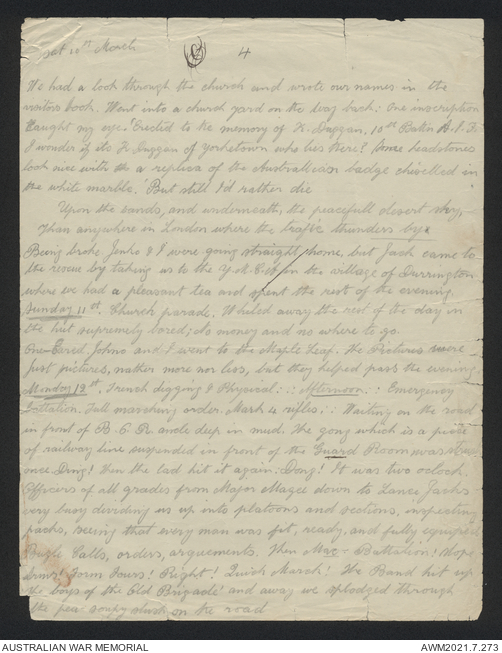 Sat 10th March
4
We had a look through the church and wrote our names in the
visitors book. Went into a church yard on the way back: One inscription
caught my eye! Erected to the memory of K. Duggan, 10th Batln A.I.F.
I wonder if its K Duggan of Yorketown who lies there? Some headstones
look nice with the a replica of the Australian badge chiselled in
the white marble. But still I'd rather die
Upon the sands, and underneath, the peacefull desert sky,
Than anywhere in London where the traffic thunders by.
Being broke Jenks & I were going straight home, but Jack came to
the rescue by taking us to the Y.M.C.A in the village of Durrington
where we had a pleasant tea and spent the rest of the evening.
Sunday 11th. Church parade. Whiled away the rest of the day in
the hut supremely bored; no money and no where to go.
One-Eyed Johno and I went to the Maple Leaf. The Pictures were
just pictures, nather more nor less, but they helped pass the evening
Monday 12th, Trench digging & Physical: .: Afternoon. : Emergency
Battalion. Full marching order. Mark 4 rifles. : Waiting on the road
in front of B. O. R. ancle deep in mud. The gong which is a piece
of railway line suspended in front of the Guard Room was struck
once Ding! then the lad hit it again. Dong! It was two oclock.
Officers of all grades from Major Magee down to Lance Jacks
very busy dividing us up into platoons and sections, inspecting
packs, seeing that every man was fit, ready, and fully equiped
Bugle Calls, orders, arguements. Then Battalion! Slope
Arms! Form Fours! Right! Quick March! The Band hit up
the boys of the Old Brigade' and away we splodged through
the pea soupy slush on the road
AUSTRALIAN WAR MEMORIAL
AWM2021.7.273